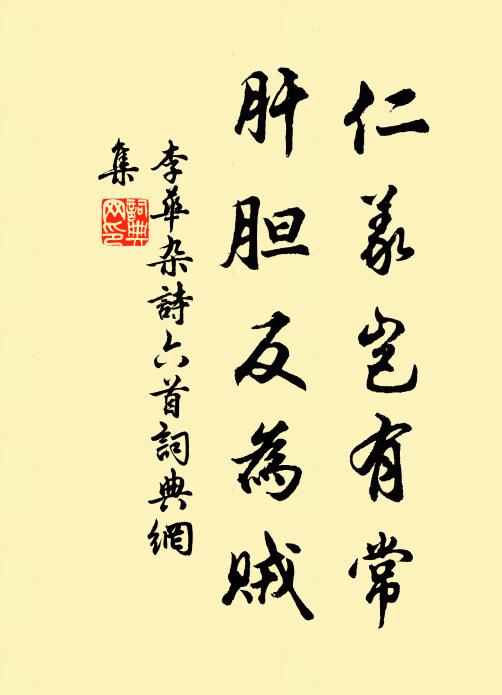 仁義岂有常
肝胆反為贼
李華杂詩六首詞典網
集
詞典
网印